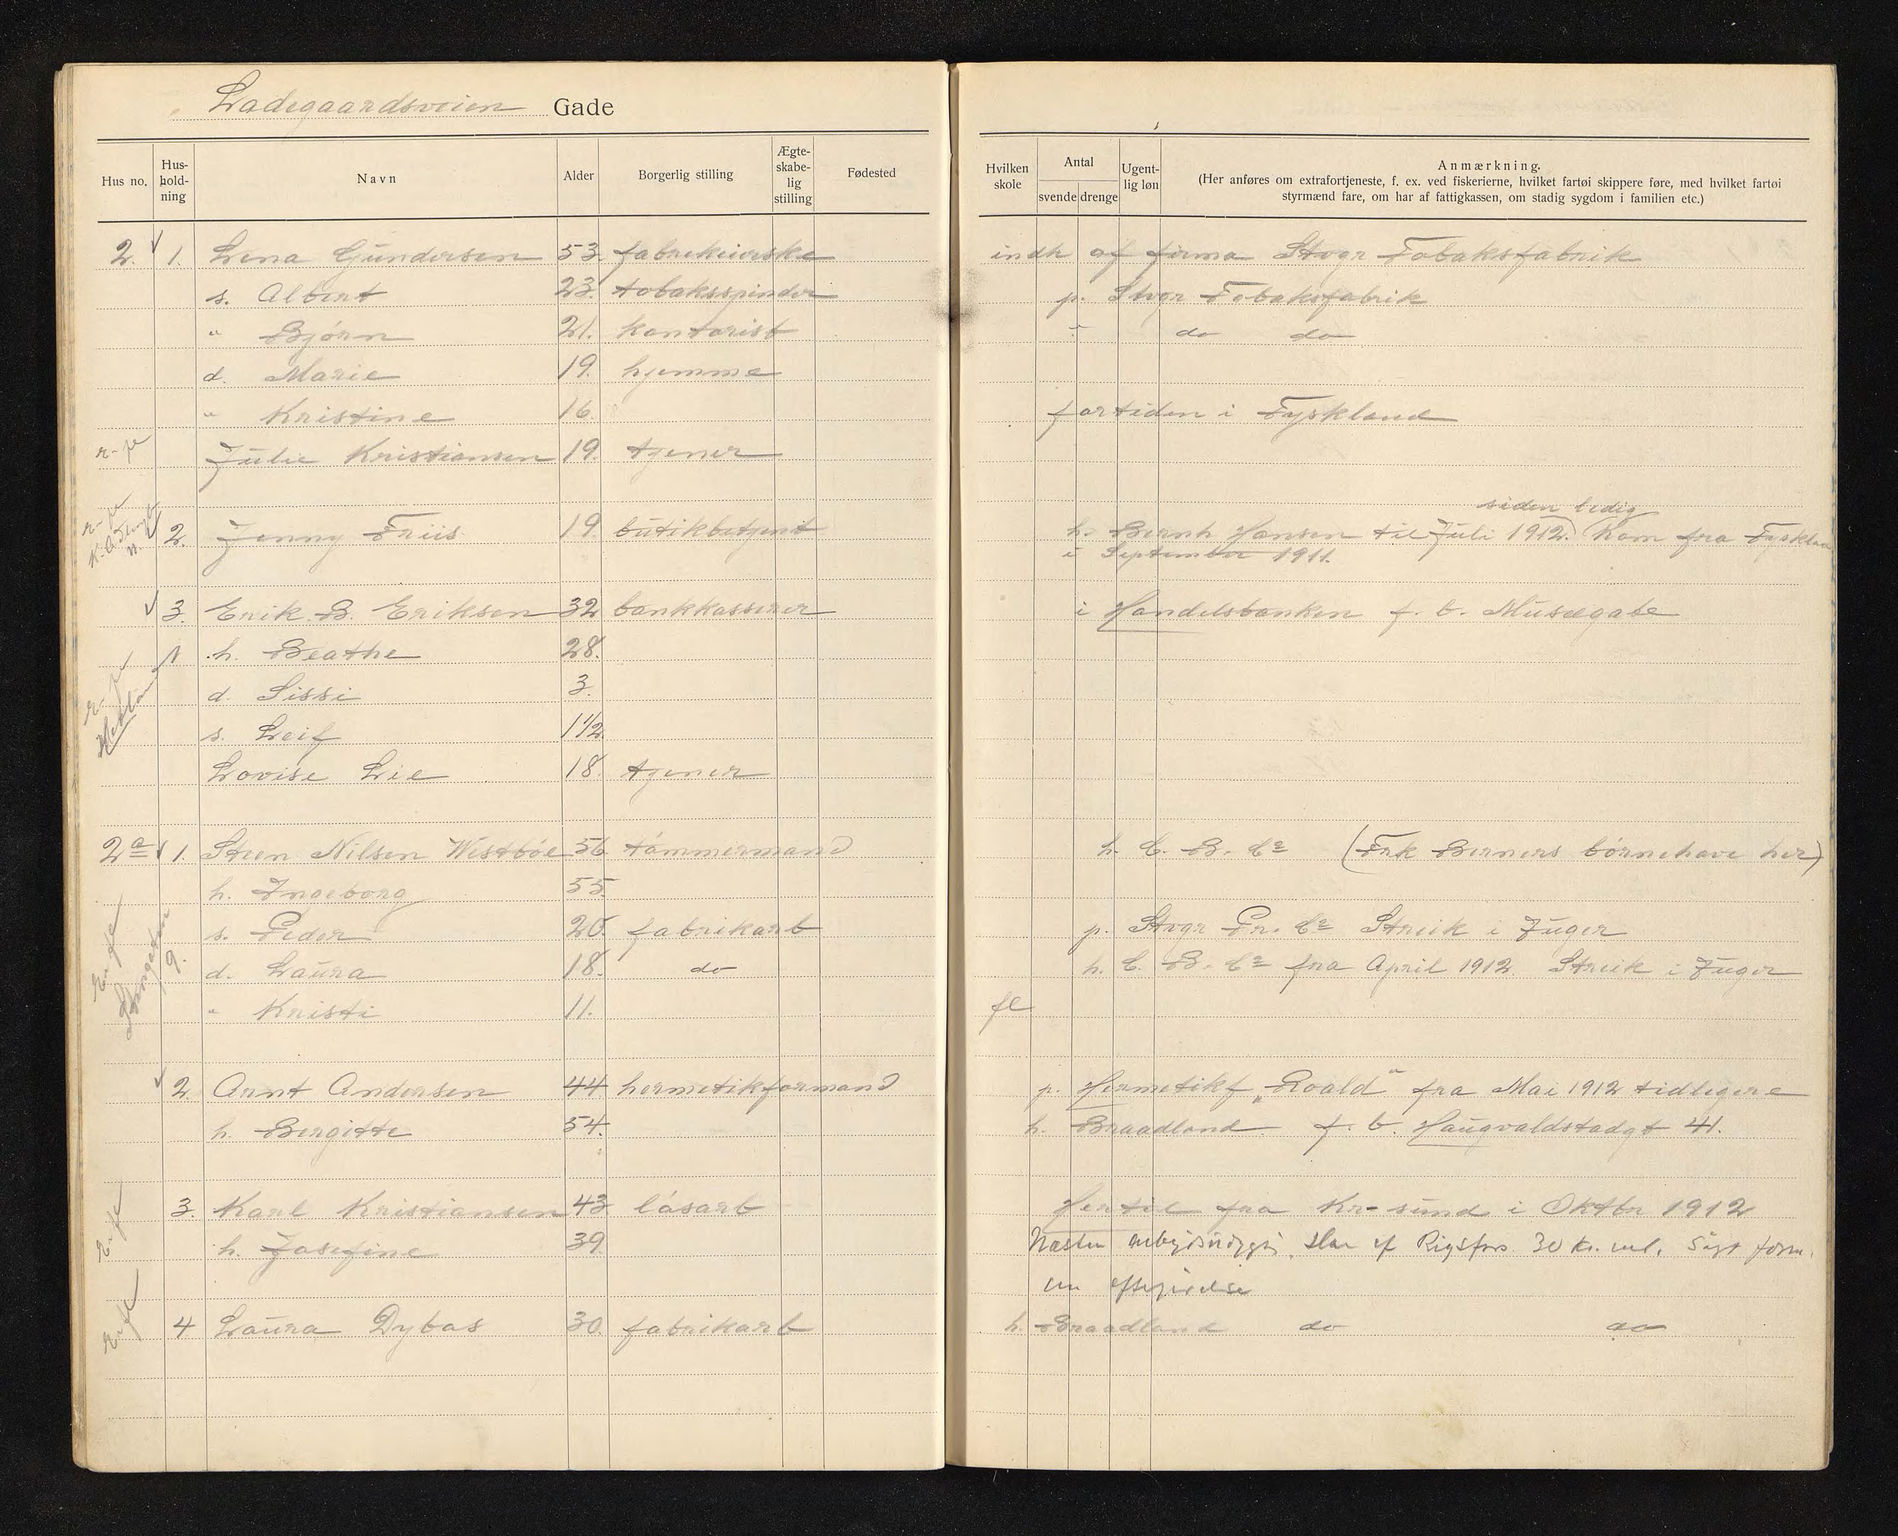 Ladegaardsveien Gade
Hus no. Hus-hold-ning Navn Alder Borgerlig stilling Ægte-skabe-lig stilling Fødested Hvilken skole Antal svende drenge Ugent-lig løn Anmærkning.
(Her anføres om extrafortjeneste, f. ex. ved fiskerierne, hvilket fartøi skippere føre, med hvilket fartøi
styrmænd fare, om har af fattigkassen, om stadig sygdom i familien etc.)
2. 1. Lena Gundersen 53. fabrekeierske indh af firma Stvgr Tobaksfabrik
s. Albert 23. tobaksspinder p. Stvgr Tobaksfabrik
" Bjørn 21. kontorist " do do
d. Marie 19. hjemme
" Kristine 16. fortiden i Tyskland
Julie Kristiansen 19. tjener
siden ledig
2. Jenny Friis 19. butikbetjent h. Bernh Hansen til Juli 1912. Kom fra Tyskland
i September 1911.
3. Erik B. Eriksen 32 bankkasserer i Handelsbanken f. b. Museegate
h. Beathe 28.
d. Sissi 3.
s. Leif 1 1/2
Lovise Lie 18. tjener
2a 1. Steen Nilsen Westbøe 56. tømmermand h. C. B. Co (Frk Berners børnehave her)
h. Ingeborg 55.
s. Peder 20. fabrikarb p. Stvgr Pr. Co Streik i 7uger
d. Laura 18. do h. C. B. Co fra April 1912. Streik i 7uger
" Kristi 11. fl
2. Arnt Andersen 44 hermetikformand p. Hermetikf „Roald" fra Mai 1912 tidligere
h. Bergitte 54. h. Braadland. f. b. Haugvaldstadgt 41.
3. Karl Kristiansen 43 løsarb Hertil fra Kr-sund i Oktbr 1912
h. Josefine 39. Næsten arbeidsudygtig. Har af Rigsfors. 30 Kr. mdl. Søgt form.
om eftergivelse
4 Laura Dybas 30. fabrikarb h. Braadland do do